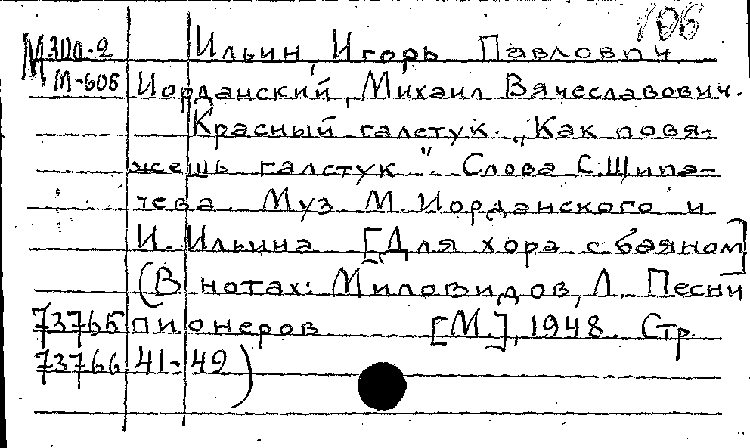 106
М 3110-2 Ильин, Игорь Павлович
М-605 Иорданский, Михаил Вячеславович.
Красный галстук. „Как повя-
жешь галстук". Слова С. Щипа-
чева. Муз. М. Иорданского и
И. Ильина. [Для хора с баяном]
(В нотах: Миловидов, Л. Песни
73765 пионеров. [М.], 1948. Стр.
73766 41-42)